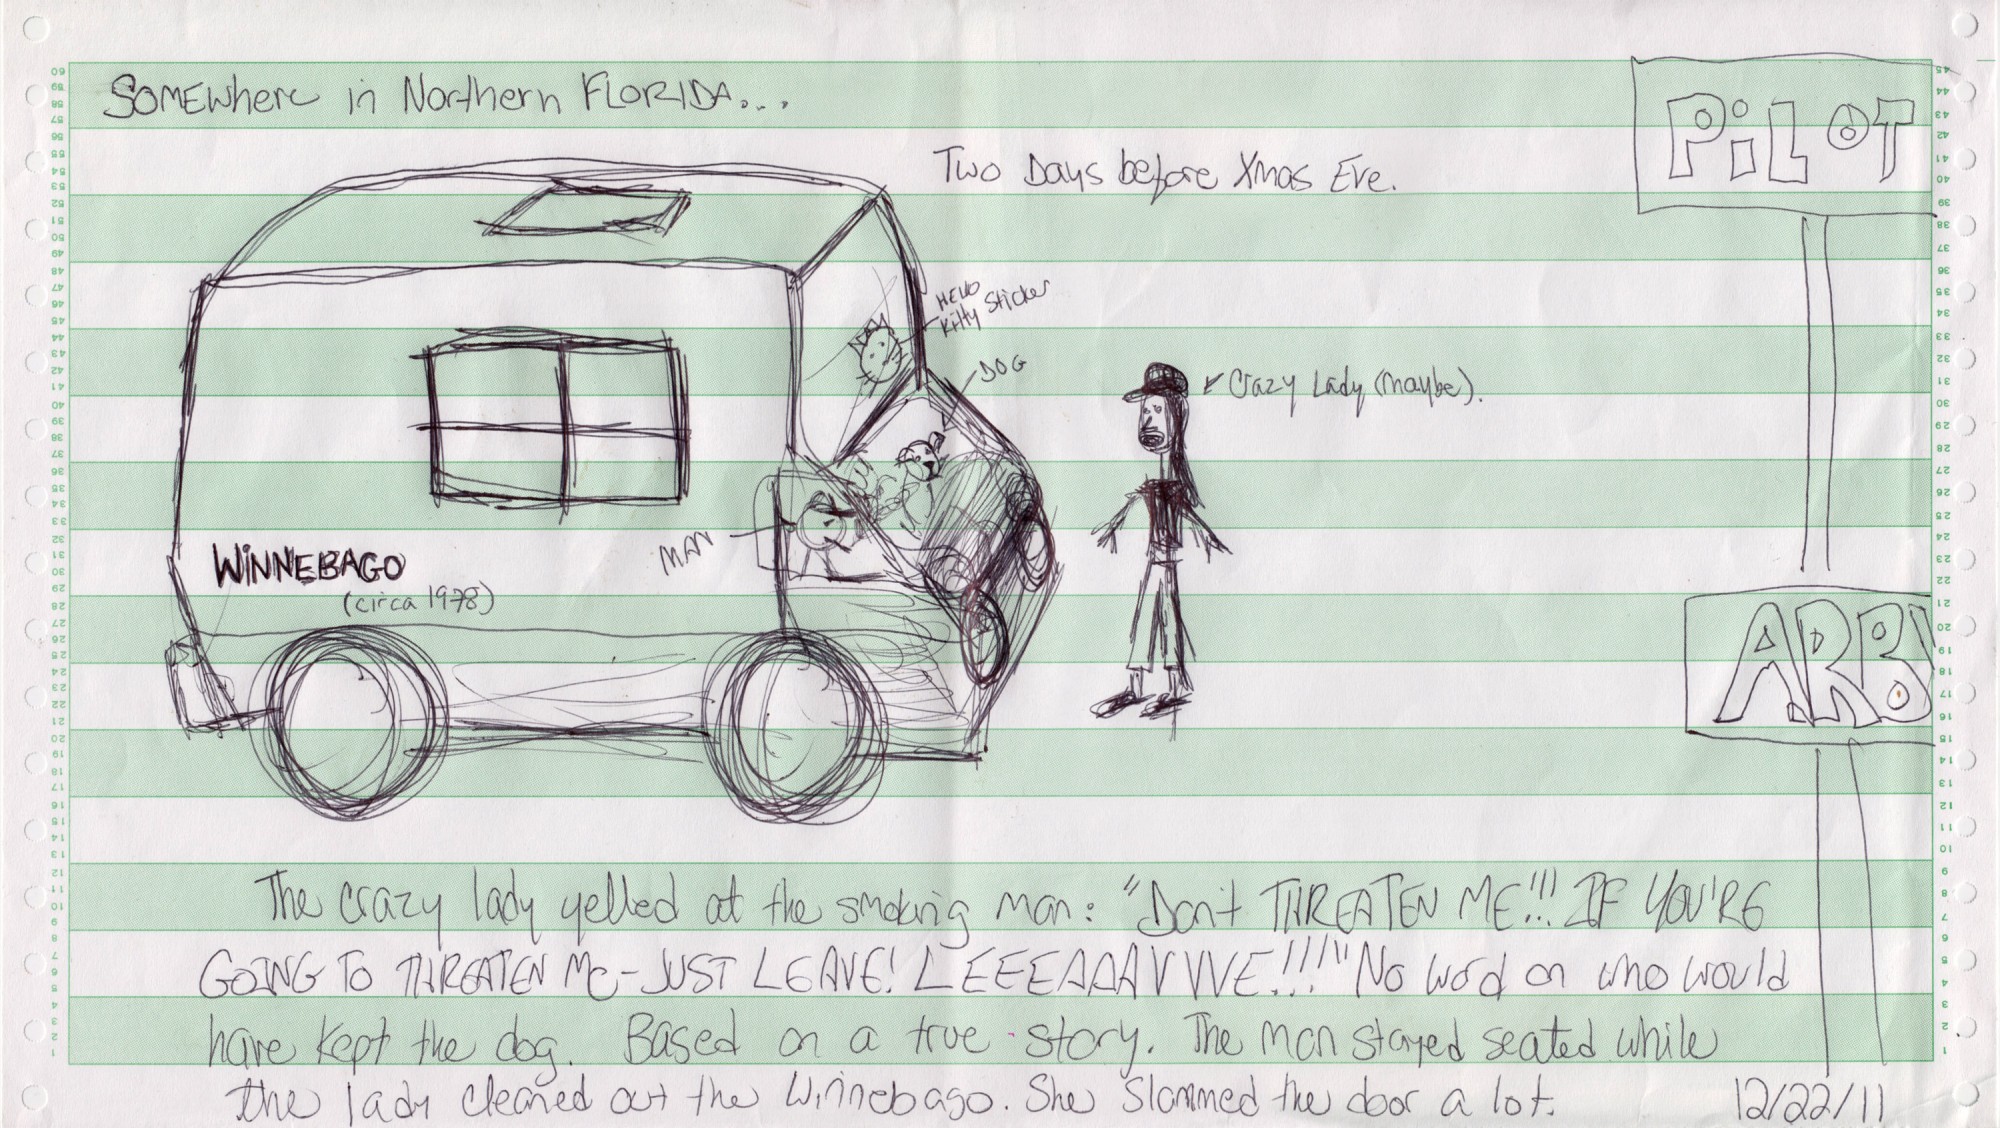 SOMEWhere in Northern FLORIDA...
Two Days before Xmas Eve.
PiLOT
HELLO
Kitty Sticker
DOG
Crazy Lady (maybe).
MAN
WiNNEBAGO
(circa 1978)
ARB
The crazy lady yelled at the smoking man: "Don't THREATEN ME!!! IF YOU'RE
GOING TO THREATEN Me-JUST LEAVE! LEEEAAAVVVE!!!!" No word on who would
have kept the dog. Based on a true story. The man stayed seated while
the lady cleaned out the Winnebago. She slammed the door a lot.
12/22/11